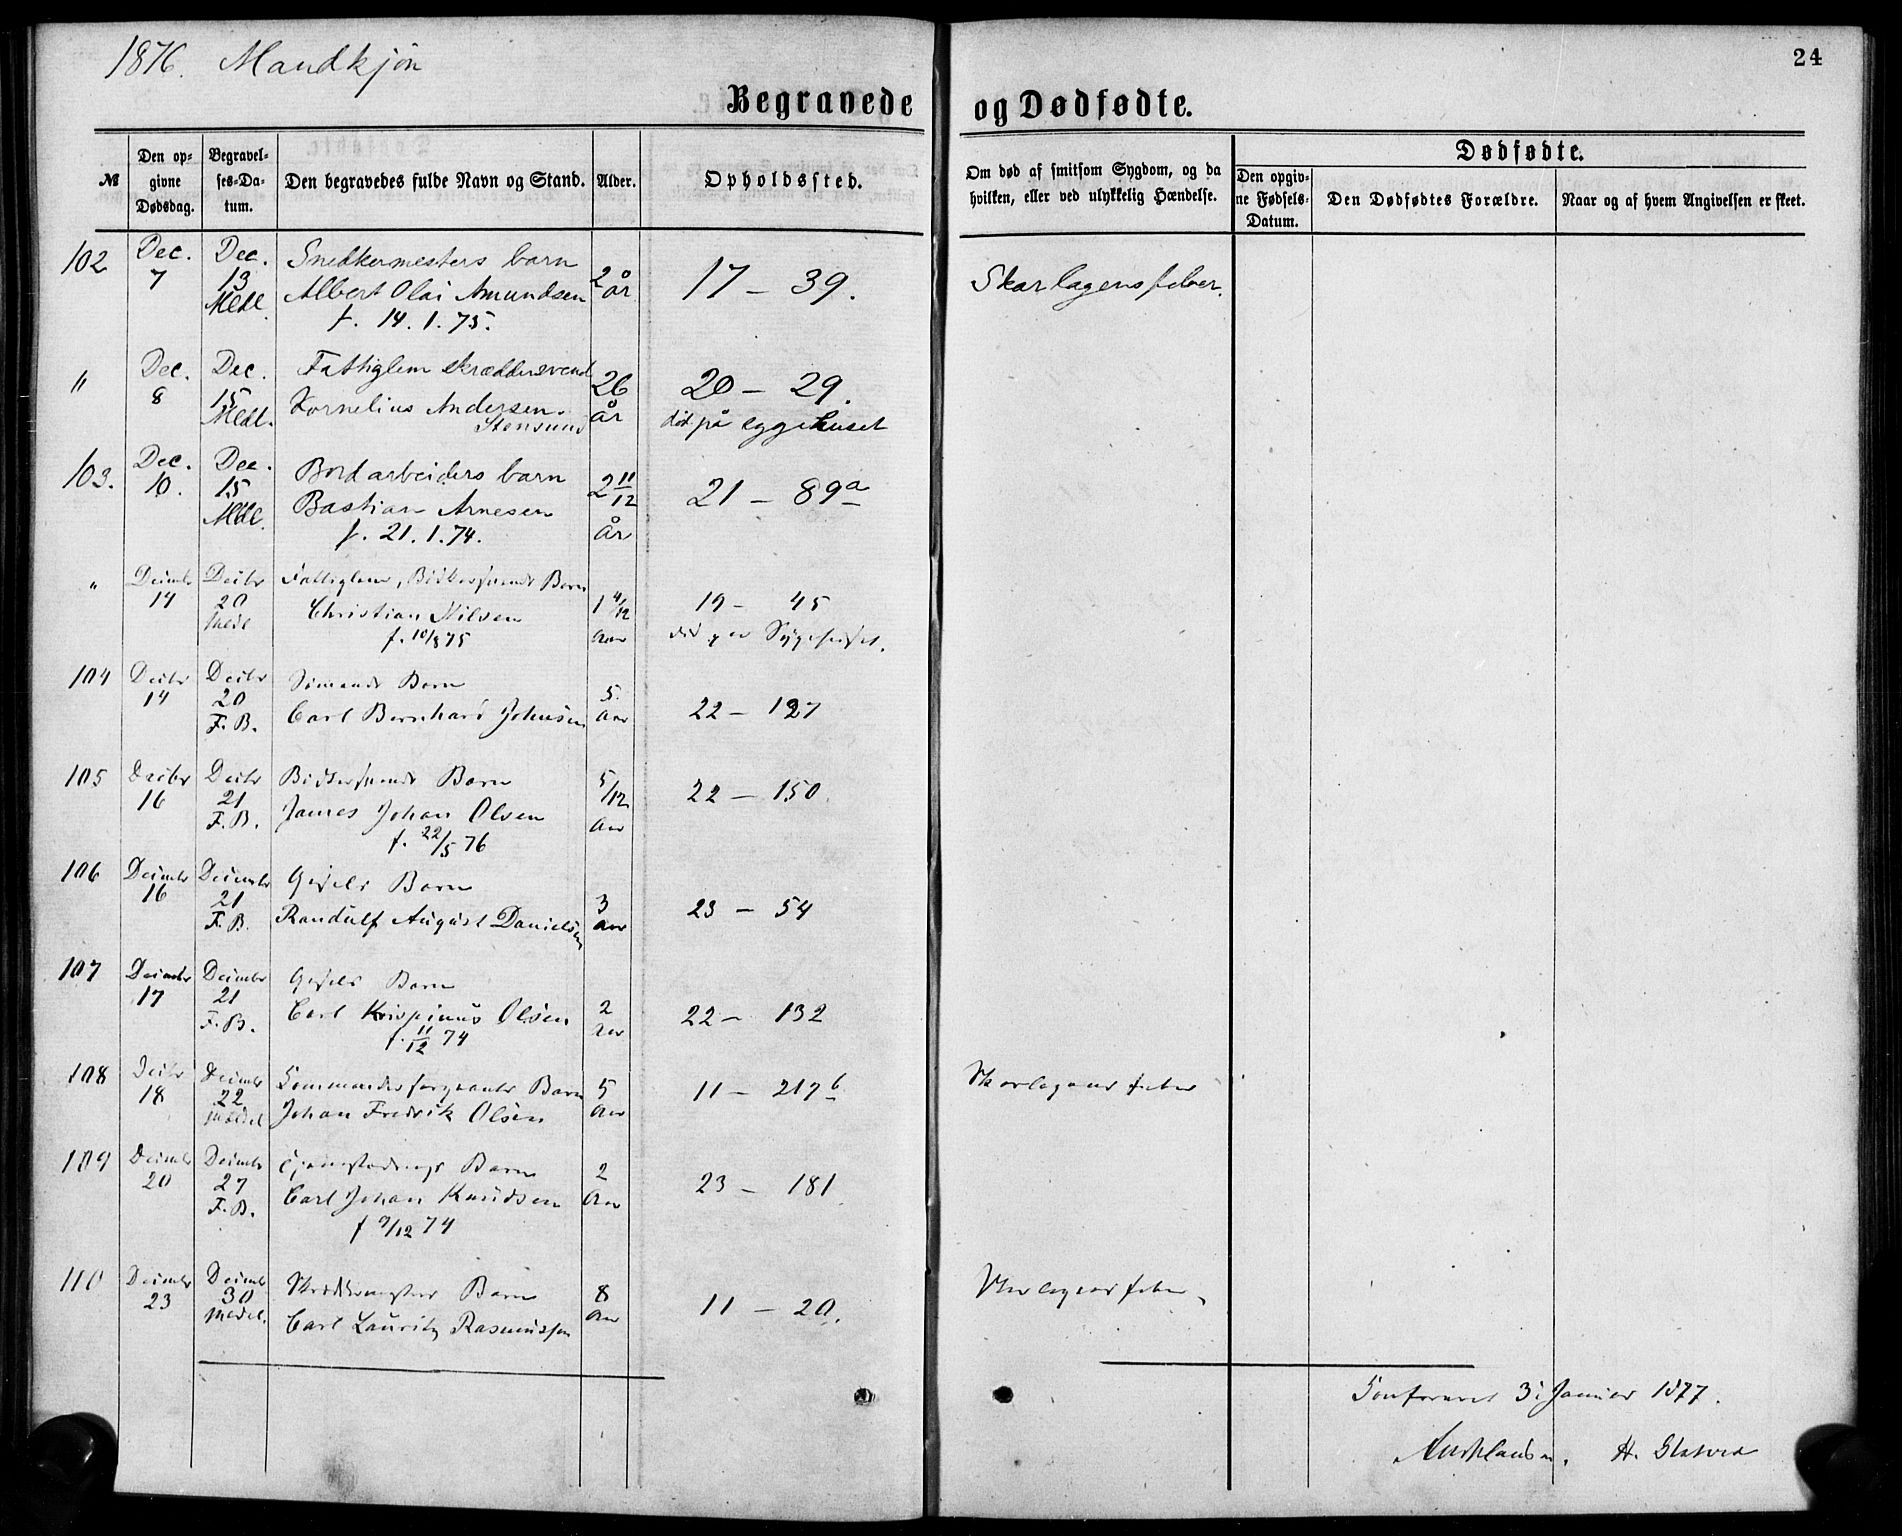 1876. Mandkjøn
24
Begravede og Dødfødte.
№
Den opgivne Dødsdag.
Begravelses-Datum.
Den begravedes fulde Navn og Stand.
Alder.
Opholdssted.
Om død af smitsom Sygdom, og da hvilken, eller ved ulykkelig Hændelse.
Dødfødte.
Den opgivne Fødsels-Datum.
Den Dødfødtes Forældre.
Naar og af hvem Angivelsen er skeet.
102 Dec. 7 Dec. 13 Medl. Snedkermesters barn 2 år 17 – 39. Skarlagensfeber.
Albert Olai Amundsen
f. 14.1.75.
" Dec. 8 Dec. 15 Medl. Fattiglem skræddersvend 26 år 20 – 29.
Kornelius Andersen. død på sygehuset
Stensund
103. Dec. 10. Dec. 15 Medl. Bordarbeiders barn 2 11/12 år 21 – 89a
Bastian Arnesen
f. 21.1.74.
" Decmbr 14 Decbr 20 Medl Fattiglem, Bødkersvends Barn 1 4/12 Aar 19 – 45
Christian Nilsen død paa Sygehuset.
f. 10/8 75
104 Decbr 14 Decbr 20 F.B. Sømands Barn 5 Aar 22 – 127
Carl Bernhard Johnsen
105 Decbr 16 Decbr 21 F.B. Bødkersvends Barn 5/12 Aar 22 – 150
James Johan Olsen
f. 22/5 76
106 Decmbr 16 Decembr 21 F.B. Gesels Barn 3 Aar 23 – 54
Randulf August Danielsen
107 Decmbr 17 Decmbr 21 F.B. Gesels Barn 2 Aar 22 – 132
Carl Krispinus Olsen
f. 11/12 74
108 Decbr 18 Decmbr 22 Meddel Kommandersergeants Barn 5 Aar 11 – 217b Skarlagensfeber
Johan Fredrik Olsen
109 Decmbr 20 Decmbr 27 F.B. Barn 2 Aar 23 – 181
Carl Johan Knudsen
f 9/12 74
110 Decmbr 23 Decmbr 30 Medel. Skræddermesters Barn 8 Aar 11 – 20. Skarlagensfeber
Carl Lauritz Rasmussen
Confereret 3 Januar 1877.